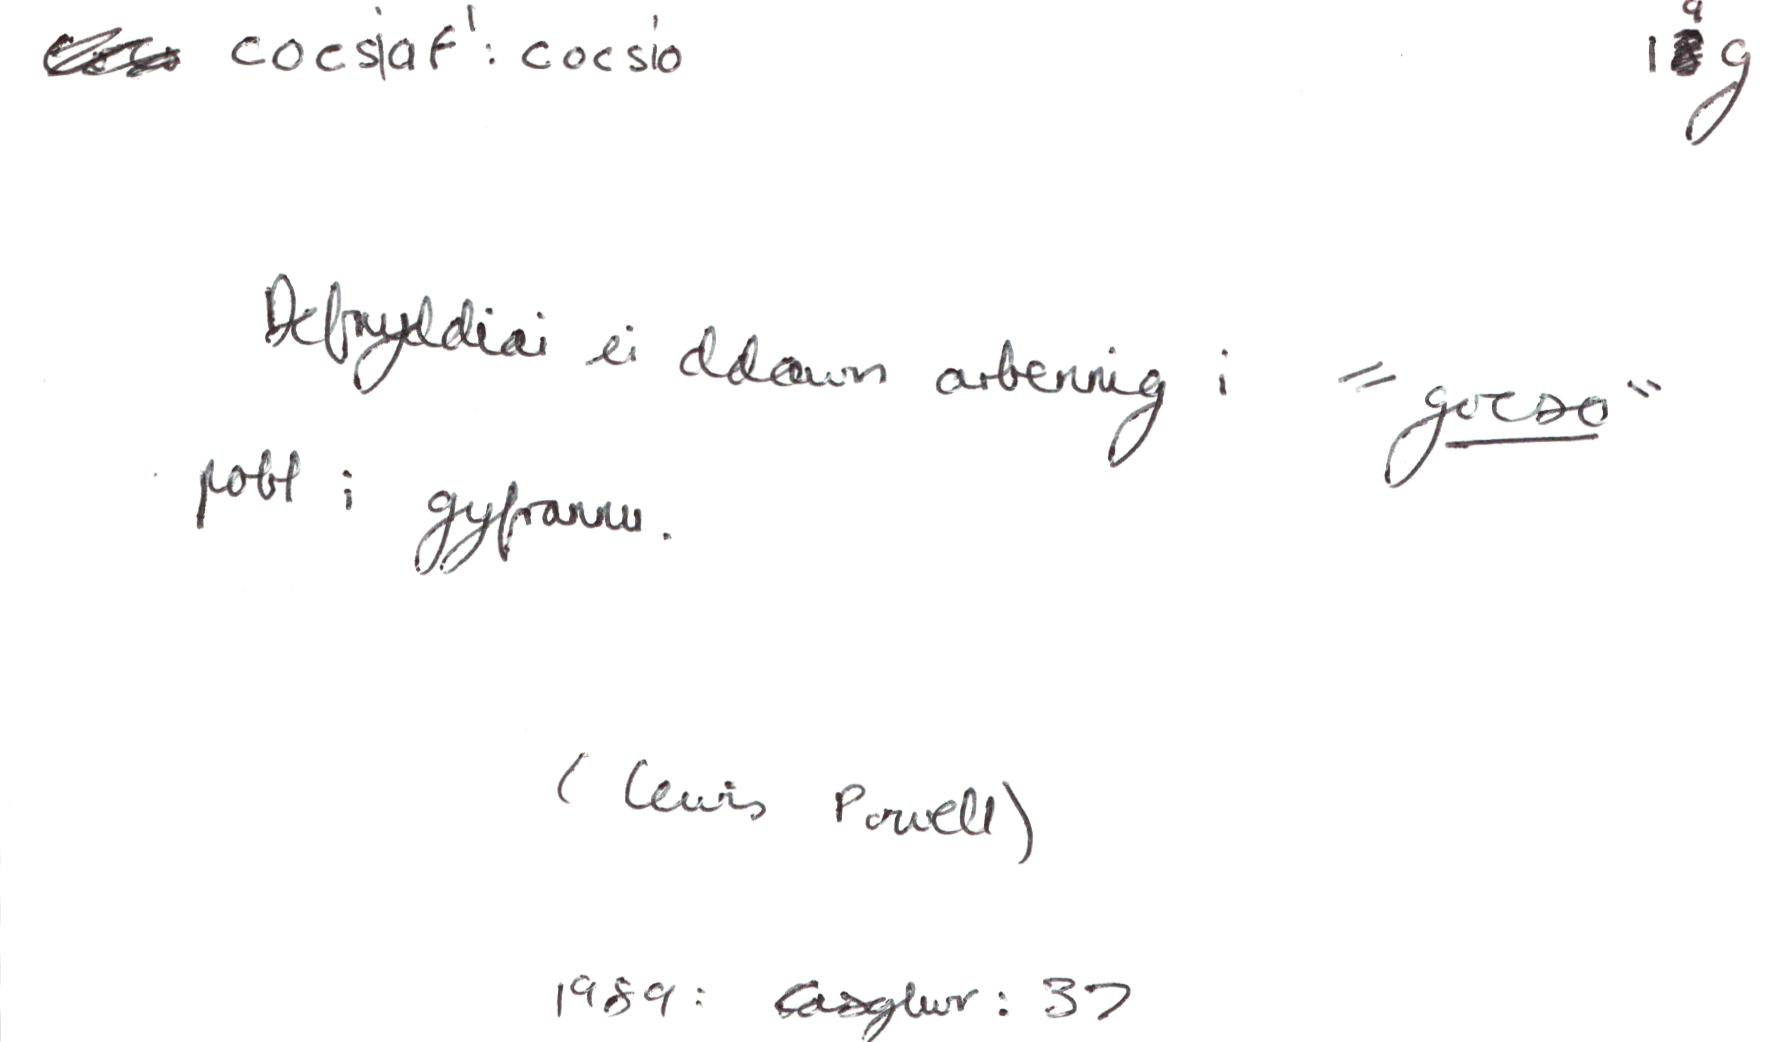 cocsiaf¹: cocsio 19g
Defnyddiai ei ddawn arbennig i "gocso"
pobl i gyfrannu.
(Lewis Powell)
1989: Casglwr: 37